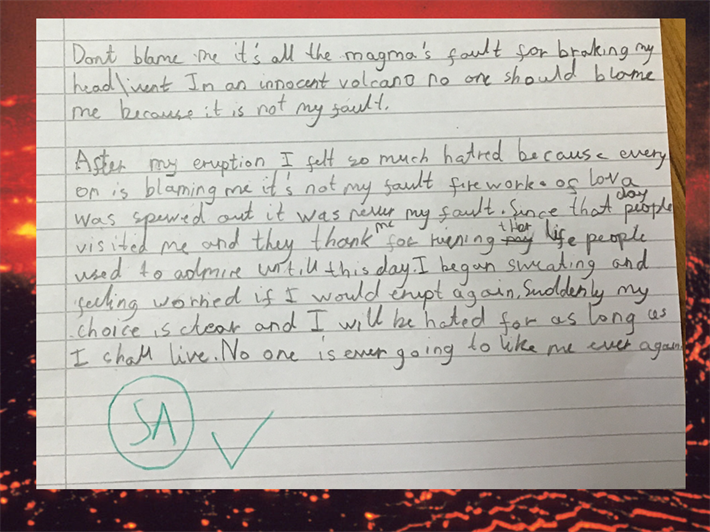 Dont blame me it's all the magma's fault for braking my
head/vent In an innocent volcano no one should blame
me because it is not my fault.
After my eruption I felt so much hatred because every
on is blaming me it's not my fault fireworks of lava
was spewed out it was never my fault. Since that day people
visited me and they thank me for ruening ther life people
used to admire untill this day. I began sweating and
feeling worried if I would erupt again. Suddenly my
choice is clear and I will be hated for as long as
I shall live. No one is ever going to like me ever again.
SA